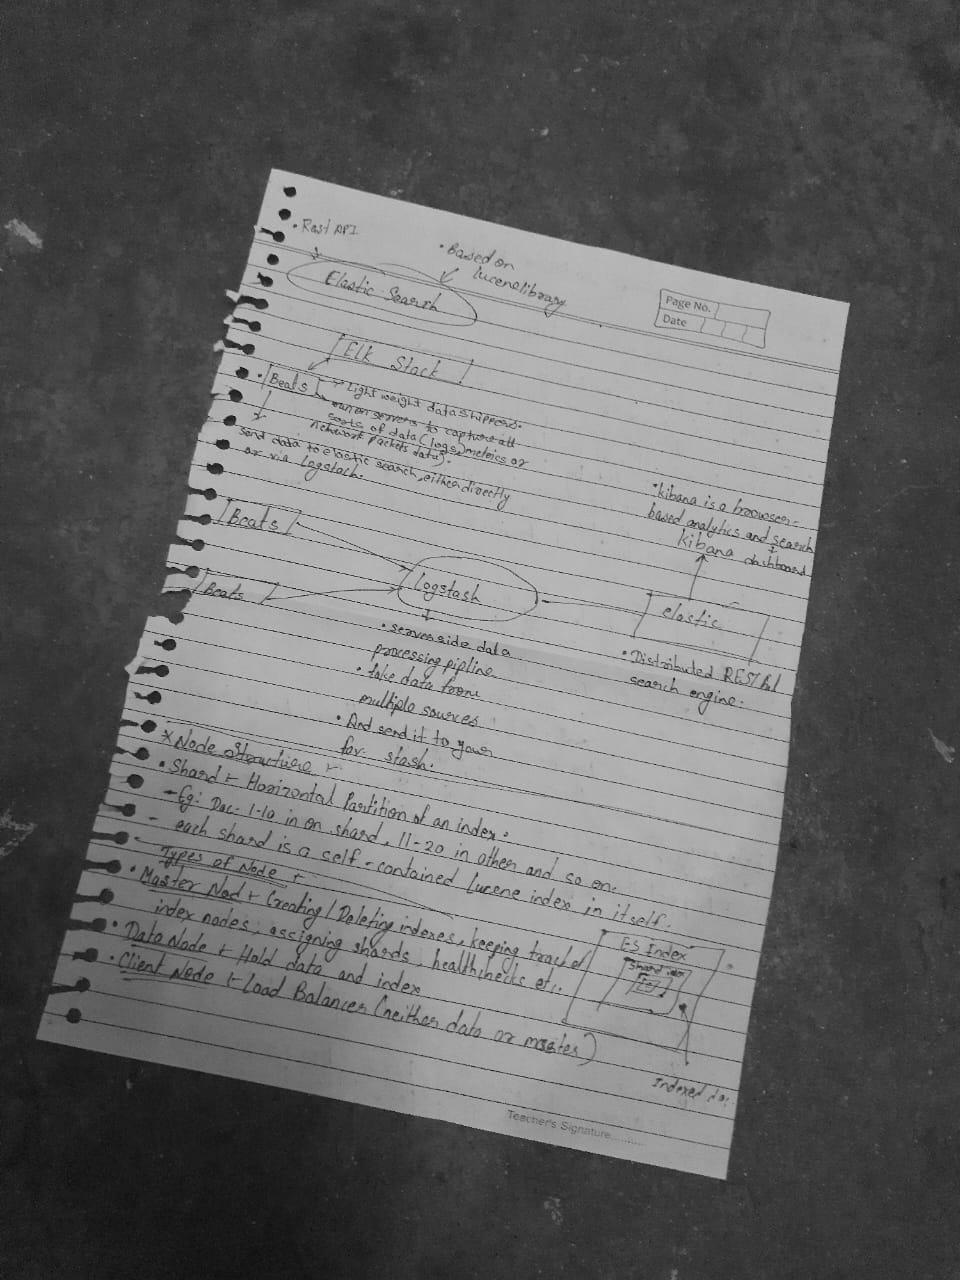 • Rest API
• Based on
lucene library
Elastic Search
Page No.
Date
Elk Stack
• Beats
Light weight data shippers.
run on servers to capture all
sorts of data (logs, metrics or
network packets data).
Send data to elastic search, either directly
or via Logstach.
• kibana is a browser-
based analytics and search
dashboard
kibana
Beats
Beats
Logstash
elastic
• serverside data
processing pipline
• take data from
multiple sources
• And send it to your
fav. stash.
• Distributed RESTful
search engine.
* Node Structure
• Shard Horizontal Partition of an index.
- Eg: Doc- 1-10 in on shard, 11-20 in other and so on.
- each shard is a self-contained Lucene index in itself.
Types of Node
• Master Nod Creating/Deleting indexes, keeping track of
index nodes, assigning shards, healthchecks etc.
• Data Node Hold data and index
• Client Node Load Balancer (neither data or master)
ES Index
Shard
Indexed
Teacher's Signature..........